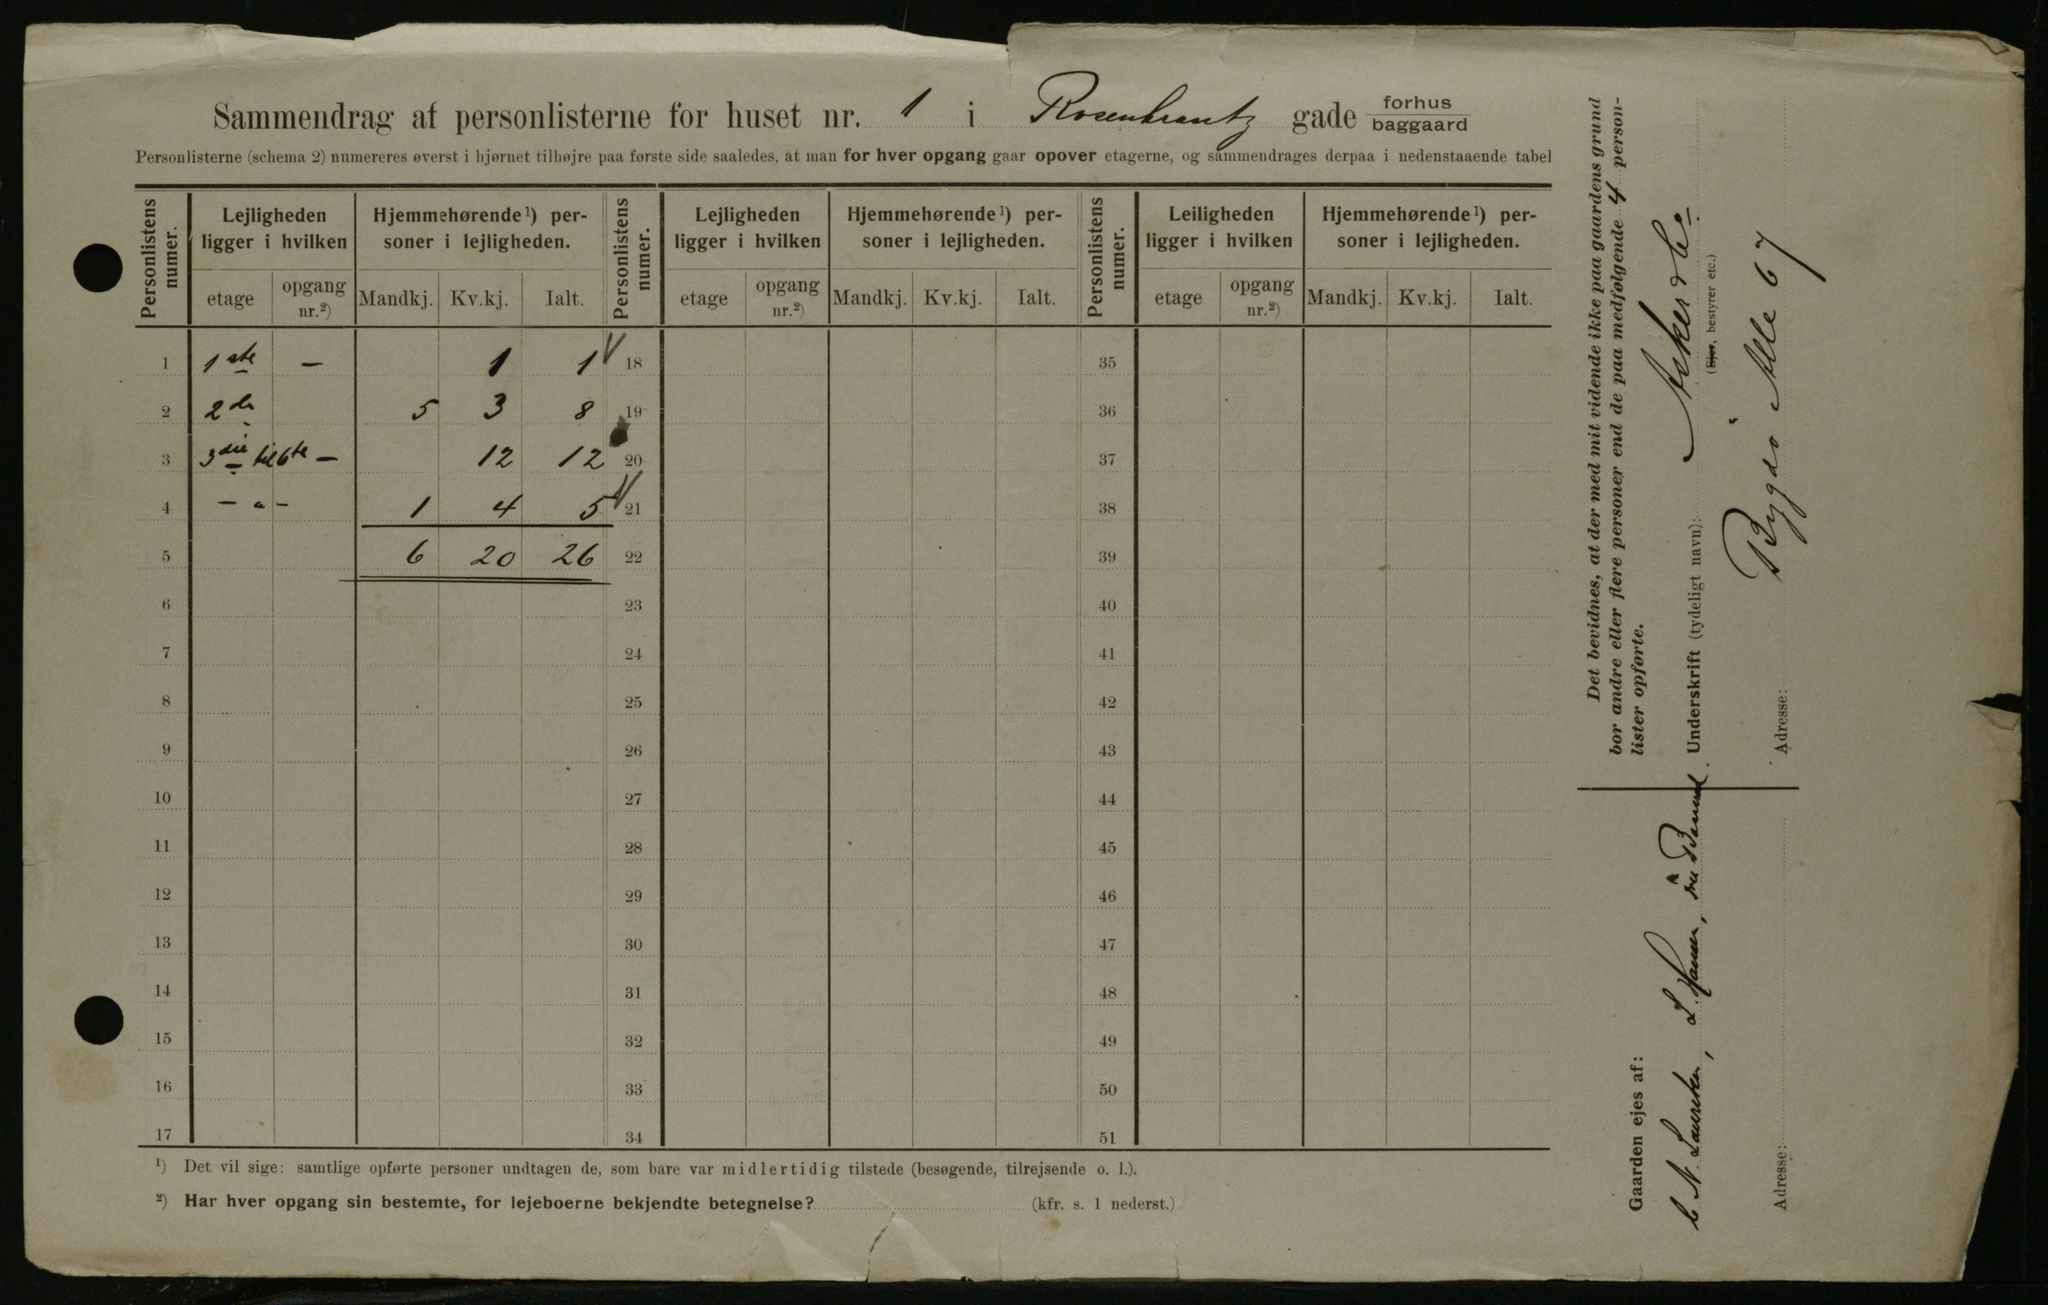 Sammendrag af personlisterne for huset nr. 1 i Rosenkrantz gade forhus baggaard
Personlisterne (schema 2) numereres øverst i hjørnet tilhøjre paa første side saaledes, at man for hver opgang gaar opover etagerne, og sammendrages derpaa i nedenstaaende tabel
Personlistens numer. Lejligheden ligger i hvilken Hjemmehørende ¹) personer i lejligheden. Personlistens numer. Lejligheden ligger i hvilken Hjemmehørende ¹) personer i lejligheden. Personlistens numer. Leiligheden ligger i hvilken Hjemmehørende ¹) personer i lejligheden.
etage opgang nr.²) Mandkj. Kv.kj. Ialt. etage opgang nr.²) Mandkj. Kv.kj. Ialt. etage opgang nr.²) Mandkj. Kv.kj. Ialt.
1 1ste – 1 1 18 35
2 2de 5 3 8 19 36
3 3die til 6te – 12 12 20 37
4 – " – 1 4 5 21 38
5 6 20 26 22 39
6 23 40
7 24 41
8 25 42
9 26 43
10 27 44
11 28 45
12 29 46
13 30 47
14 31 48
15 32 49
16 33 50
17 34 51
¹) Det vil sige: samtlige opførte personer undtagen de, som bare var midlertidig tilstede (besøgende, tilrejsende o. l.).
²) Har hver opgang sin bestemte, for lejeboerne bekjendte betegnelse? (kfr. s. 1 nederst.)
Det bevidnes, at der med mit vidende ikke paa gaardens grund
bor andre eller flere personer end de paa medfølgende 4 person-
lister opførte.
Underskrift (tydeligt navn):
(Ejer, bestyrer etc.)
Adresse: Bygdö Alle 67
Gaarden ejes af:
L. Hansen,
Adresse: